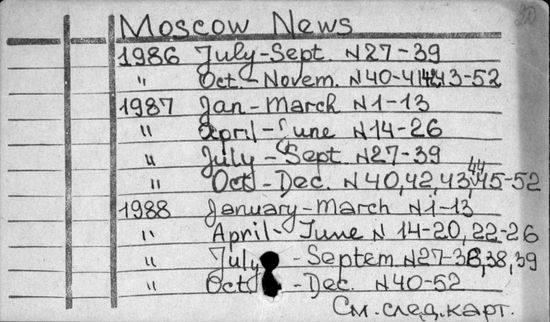 Moscow News
1986 July-Sept. N27-39
" Oct.-Novem. N40-41,42,43-52
1987 Jan-March N1-13
" April-June N14-26
" July-Sept N27-39
" Oct-Dec. N40,42,43,44,45-52
1988 January-March N1-13
" April-June N 14-20,22-26
" July -Septem N27-36,38,39
" Oct -Dec. N40-52
См.след.карт.